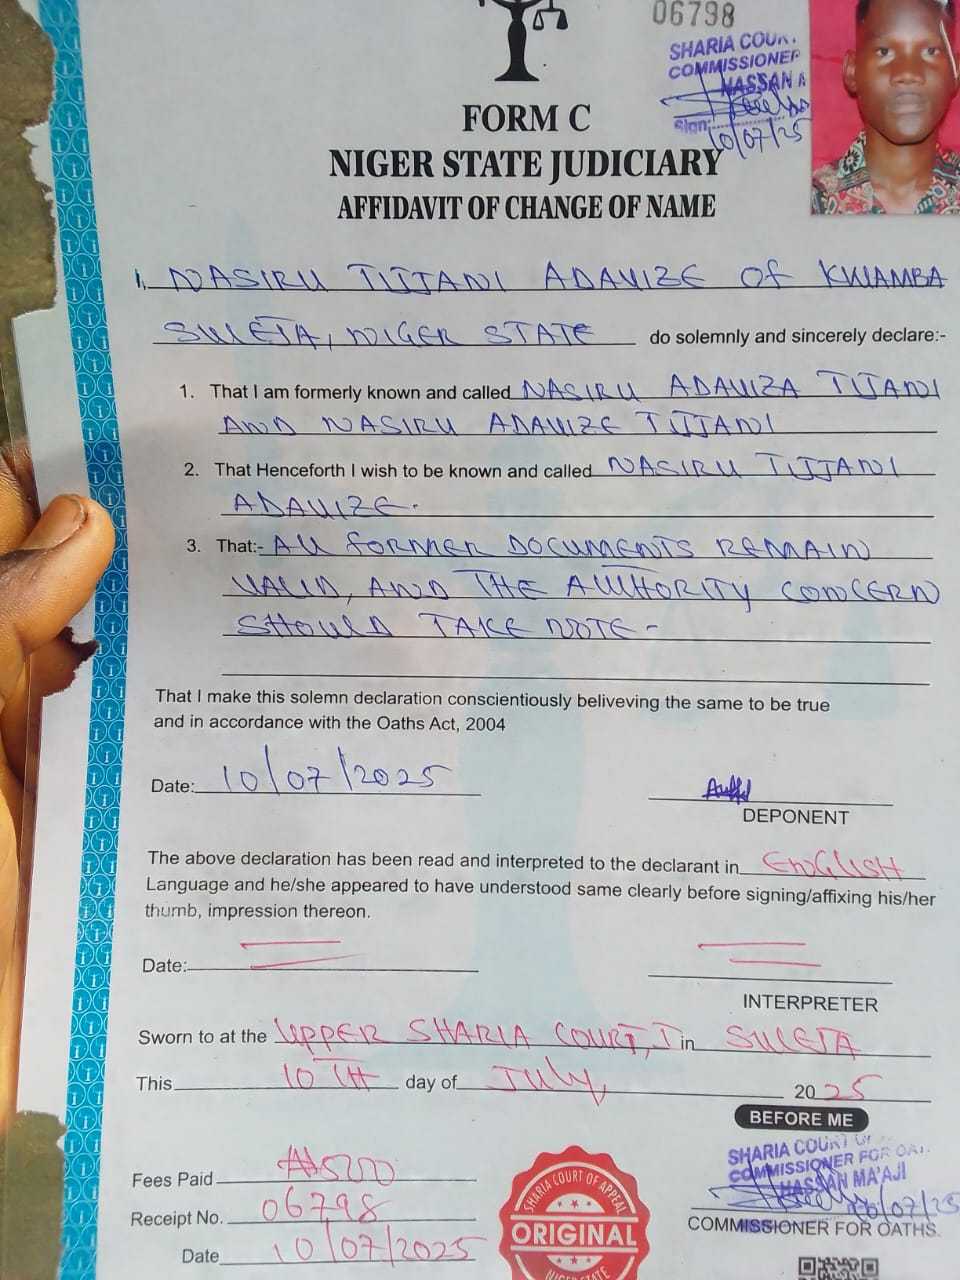 06798
SHARIA COUR
COMMISSIONER
HASSAN
Sign:
10/07/25
FORM C
NIGER STATE JUDICIARY
AFFIDAVIT OF CHANGE OF NAME
I, NASIRU TIJJANI ADAVIZE OF KWAMBA
SULEJA, NIGER STATE do solemnly and sincerely declare:-
1. That I am formerly known and called NASIRU ADAVIZA TIJANI
AND NASIRU ADAVIZE TIJJANI
2. That Henceforth I wish to be known and called NASIRU TIJJANI
ADAVIZE.
3. That:- All FORMER DOCUMENTS REMAIN
VALID, AND THE AUTHORITY CONCERN
SHOULD TAKE NOTE-
That I make this solemn declaration conscientiously beliveving the same to be true
and in accordance with the Oaths Act, 2004
Date: 10/07/2025
DEPONENT
The above declaration has been read and interpreted to the declarant in ENGLISH
Language and he/she appeared to have understood same clearly before signing/affixing his/her
thumb, impression thereon.
Date:
INTERPRETER
Sworn to at the UPPER SHARIA COURT, I in SULEJA
This 10th day of July, 2025
BEFORE ME
SHARIA COURT OF
COMMISSIONER FOR OAT
HASSAN MA'AJI
10/07/25
COMMISSIONER FOR OATHS.
Fees Paid ₦5200
Receipt No. 06798
Date 10/07/2025
SHARIA COURT OF APPEAL
ORIGINAL
NIGER STATE